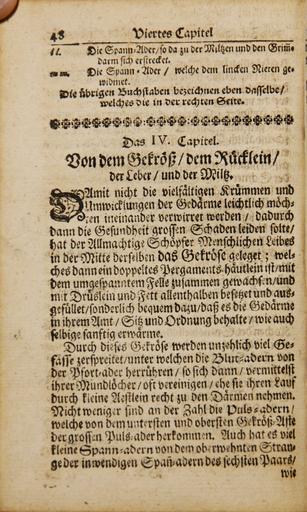 48 Viertes Capitel
ll. Die Spann-Ader/ so da zu der Miltzen und den Grim-
darm sich erstrecket.
mm. Die Spann-Ader / welche dem lincken Nieren ge-
widmet.
Die übrigen Buchstaben bezeichnen eben dasselbe/
welches die in der rechten Seite.
Das IV. Capitel.
Von dem Gekröß/ dem Rücklein/
der Leber/ und der Miltz.
DAmit nicht die vielfältigen Krümmen und
Umwicklungen der Gedärme leichtlich möch-
ten ineinander verwirret werden / dadurch
dann die Gesundheit grossen Schaden leiden solte/
hat der Allmächtige Schöpfer Menschlichen Leibes
in der Mitte derselben das Gekröse geleget; wel-
ches dann ein doppeltes Pergaments-häutlein ist/ mit
dem umgespanntem Felle zusammen gewachsen/ und
mit Drüslein und Fett allenthalben besetzet und aus-
gefüllet/ sonderlich bequem dazu/ daß es die Gedärme
in ihrem Amt/ Sitz und Ordnung behalte/ wie auch
selbige sanftig erwärme.
Durch dieses Gekröse werden unzehlich viel Ge-
fässe zerspreitet/ unter welchen die Blut-adern von
der Pfort-ader herrühren/ so sich dann / vermittelst
ihrer Mundlöcher/ oft vereinigen / ehe sie ihren Lauf
durch kleine Aestlein recht zu den Därmen nehmen.
Nicht weniger sind an der Zahl die Puls-adern/
welche von dem untersten und obersten Gekröß-Aste
der grossen Puls-ader herkommen. Auch hat es viel
kleine Spann-adern von dem oberwehnten Stran-
ge der inwendigen Spañ-adern des sechsten Paars/
wie